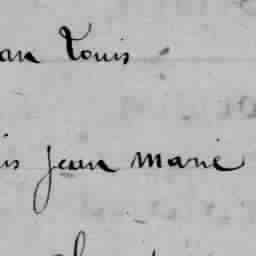 an Louis
is jean marie